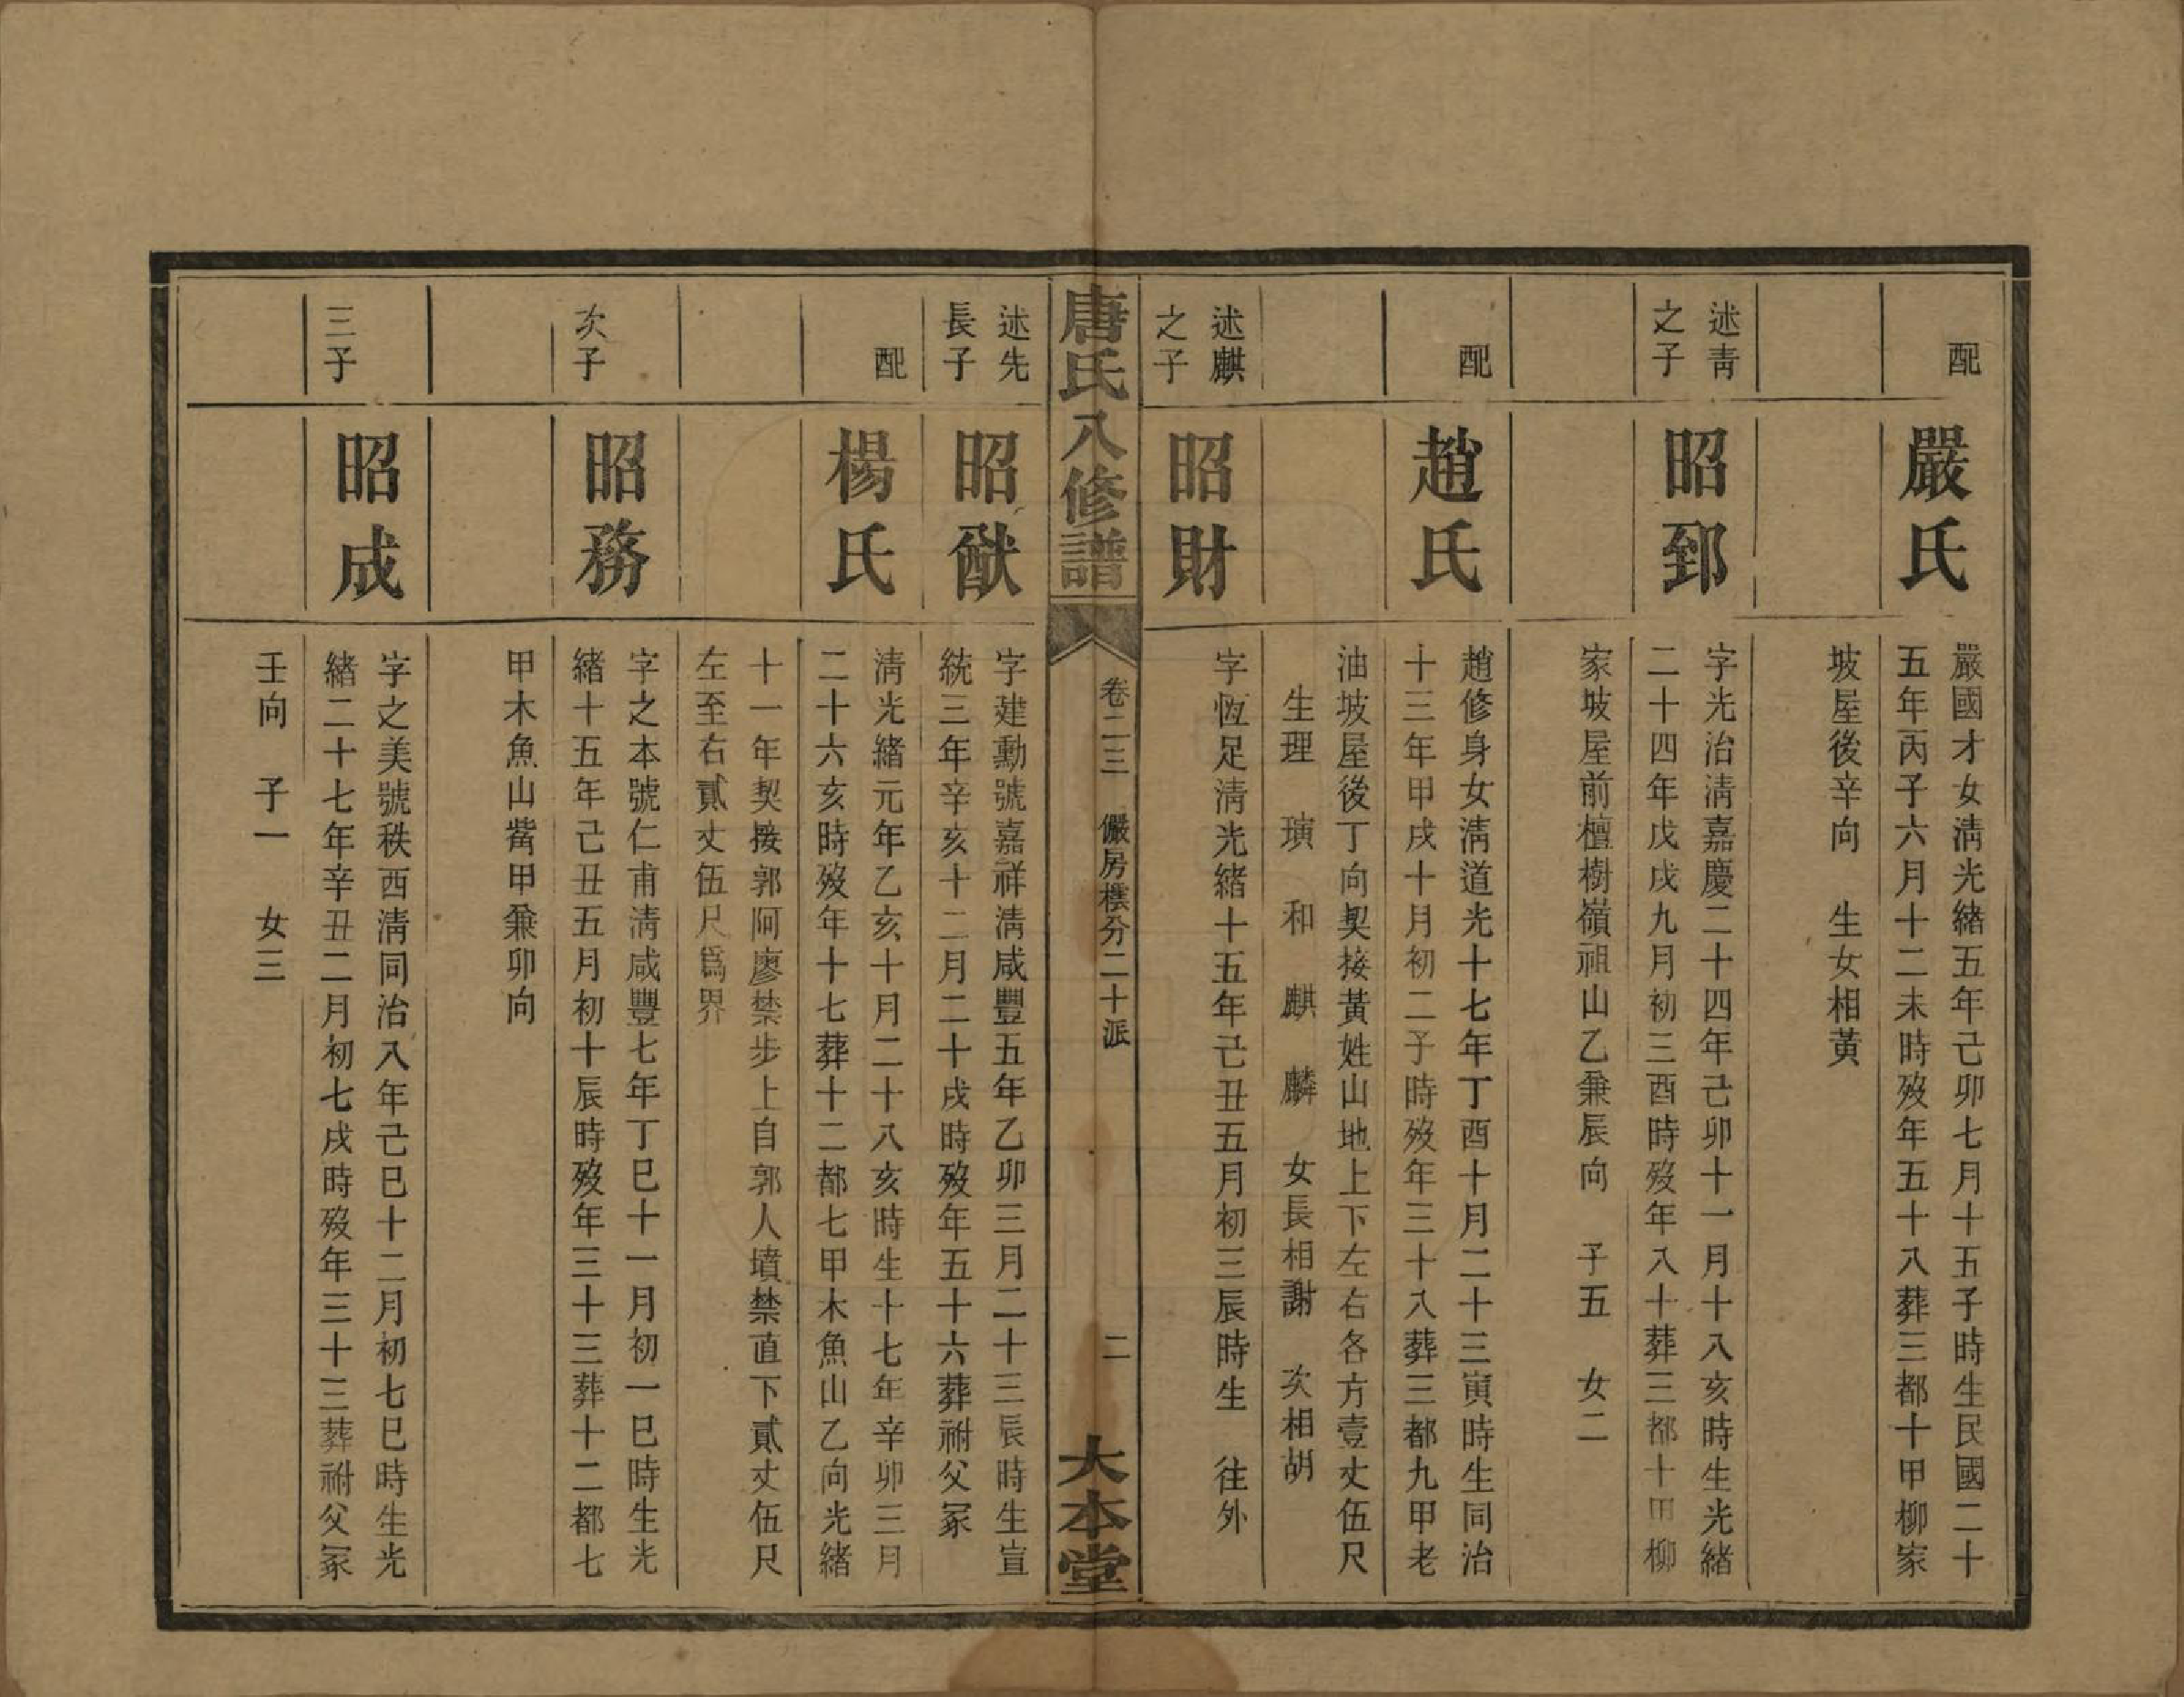 配
嚴氏
嚴國才女淸光緒五年己卯七月十五子時生民國二十
五年丙子六月十二未時歿年五十八葬三都十甲柳家
坡屋後辛向　生女相黃
述靑
之子
昭郅
字光治淸嘉慶二十四年己卯十一月十八亥時生光緒
二十四年戊戌九月初三酉時歿年八十葬三都十甲柳
家坡屋前檀樹嶺祖山乙兼辰向　子五　女二
配
趙氏
趙修身女淸道光十七年丁酉十月二十三寅時生同治
十三年甲戌十月初二子時歿年三十八葬三都九甲老
油坡屋後丁向契接黃姓山地上下左右各方壹丈伍尺
生理　璜　和　麒　麟　女長相謝　次相胡
述麒
之子
昭財
字恆足淸光緒十五年己丑五月初三辰時生　往外
唐氏八修譜
卷二三　儼房橒分二十派
二
大本堂
述先
長子
昭猷
字建勳號嘉祥淸咸豐五年乙卯三月二十三辰時生宣
統三年辛亥十二月二十戌時歿年五十六葬祔父冢
配
楊氏
淸光緒元年乙亥十月二十八亥時生十七年辛卯三月
二十六亥時歿年十七葬十二都七甲木魚山乙向光緒
十一年契接郭阿廖禁步上自郭人墳禁直下貳丈伍尺
左至右貳丈伍尺爲界
次子
昭務
字之本號仁甫淸咸豐七年丁巳十一月初一巳時生光
緒十五年己丑五月初十辰時歿年三十三葬十二都七
甲木魚山嘴甲兼卯向
三子
昭成
字之美號秩西淸同治八年己巳十二月初七巳時生光
緒二十七年辛丑二月初七戌時歿年三十三葬祔父冢
壬向　子一　女三